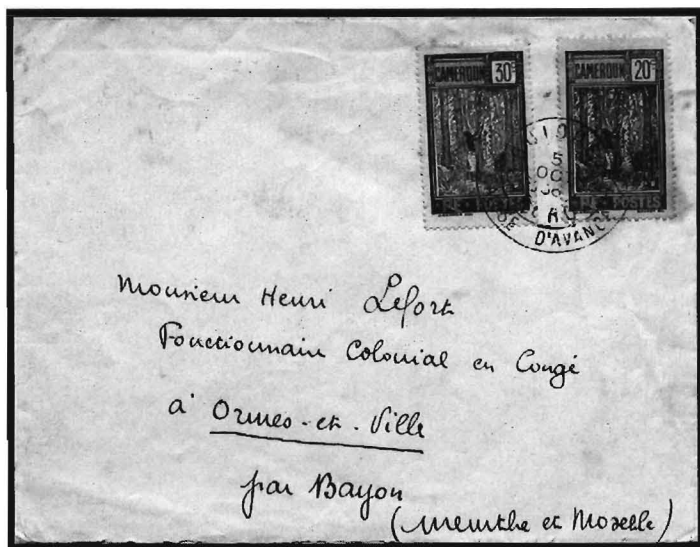 CAMEROUN 30c
CAMEROUN 20c
POSTES
POSTES
5
OC
D'AVANCE
Monsieur Henri Lefort
Fonctionnaire Colonial en Congé
à Ormes-et-Ville
par Bayon
(Meurthe et Moselle)